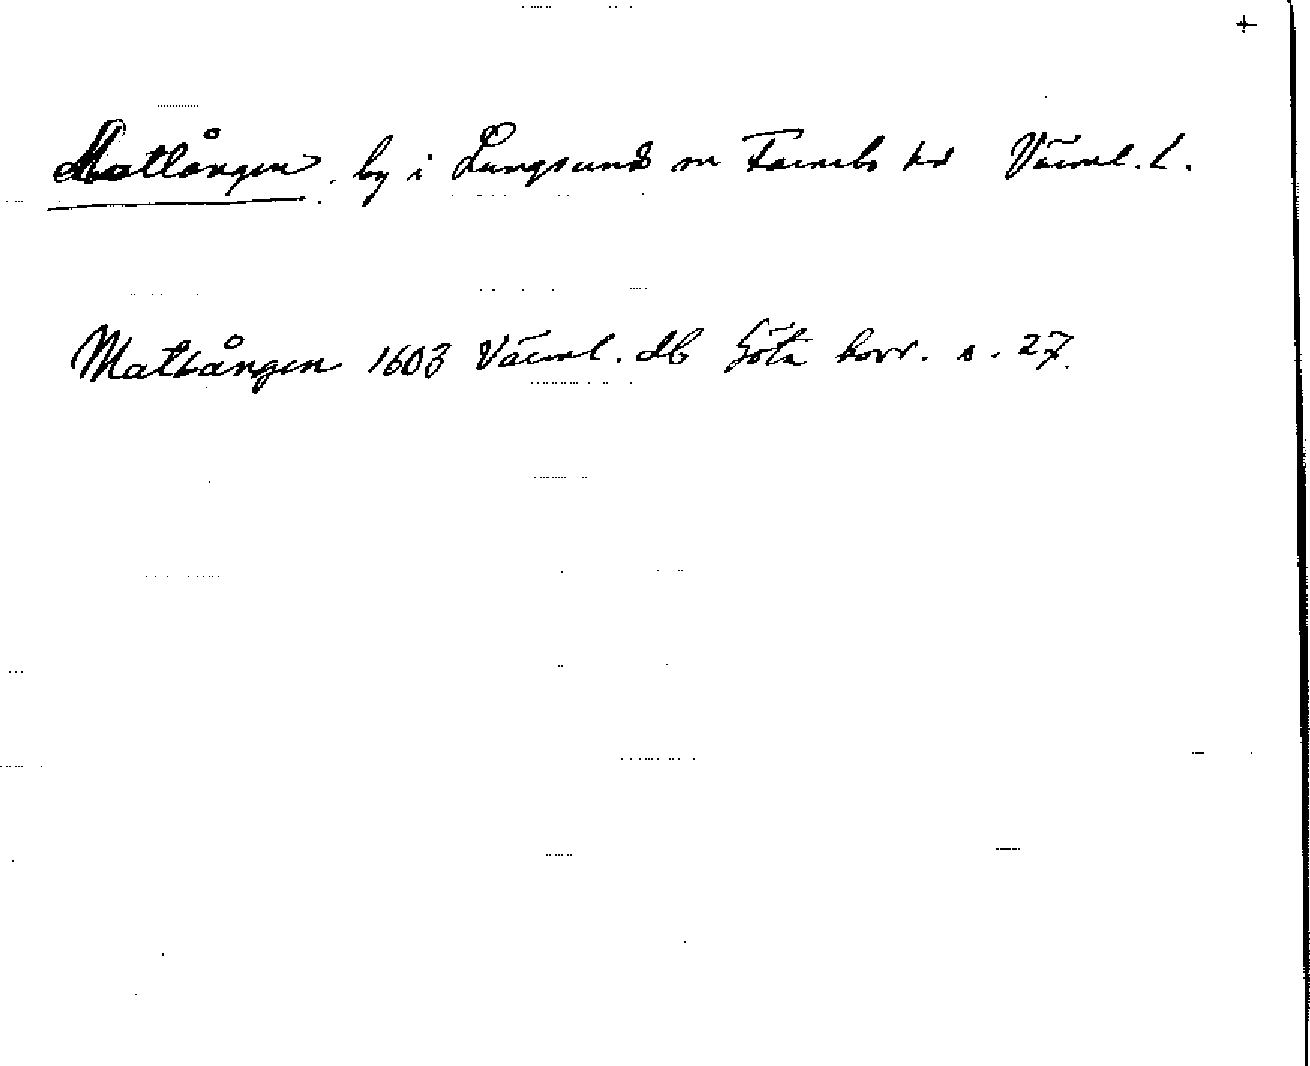 +
Matlången. by i Lungsunds sn Färnebo hd Värml. l.
Matlången 1603 Värml. db Göta hovr. s. 27.